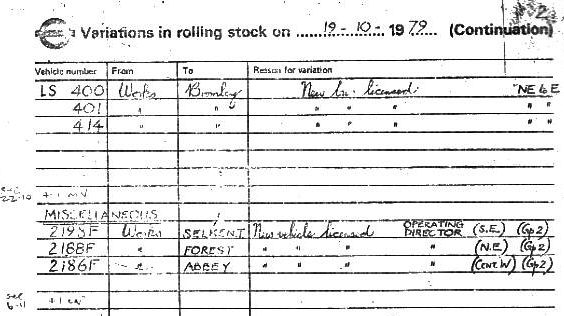 Variations in rolling stock on 19-10-1979 (Continuation)
Vehicle number From To Reason for variation
LS 400 Works Bromley New In. licensed. NE 6 E
401 " " " " " " "
414 " " " " " " "
22-10
MISCELLANEOUS
2193F Works SELKENT New vehicle licensed OPERATING DIRECTOR (S.E.) (Gp2)
2188F " FOREST " " " " (N.E) (Gp2)
2186F " ABBEY " " " " (CENT.W) (Gp2)
see
6-11